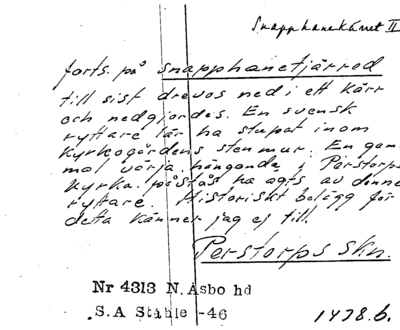 Snapphanekärret II
forts. på snapphanetjärred
till sist drevos ned i ett kärr
och nedgjordes. En svensk
ryttare lär ha stupat inom
kyrkogårdens stenmur. En gam
mal värja, hängande i Perstorps
kyrka, påstås ha ägts av denne
ryttare. Historiskt belägg för
detta känner jag ej till.
Perstorps skn.
Nr 4313 N. Åsbo hd
S.A Ståhle -46
1438.6.